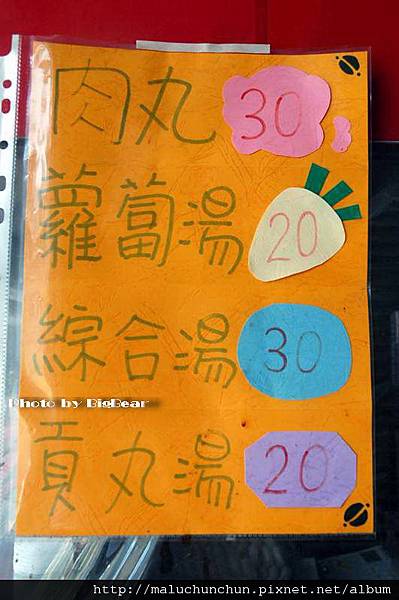 肉丸 30
蘿蔔湯 20
綜合湯 30
Photo by BigBear
貢丸湯 20
http://maluchunchun.pixnet.net/album